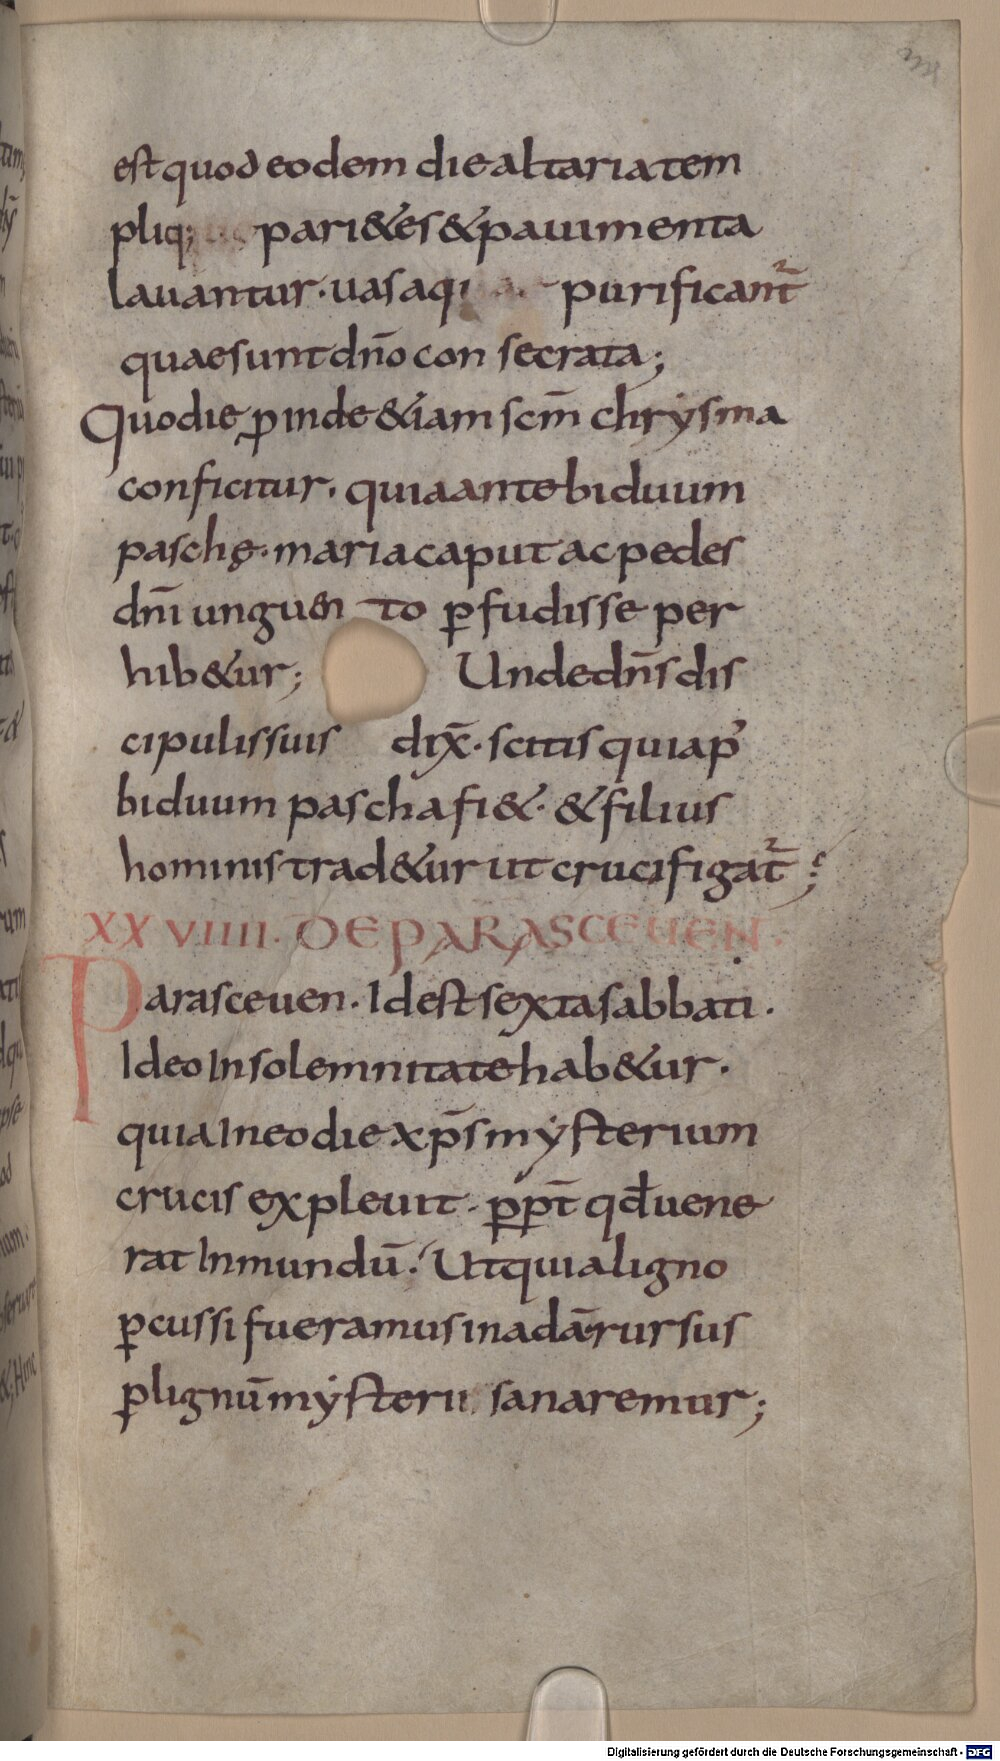 est quod eodem die altaria tem
pliq; pari&es & pauimenta
lauantur. uasaq purificant̄
quae sunt dn̄o con secrata;
Quo die ꝑinde &iam scm̄ chrẏsma
conficitur. quia ante biduum
paschę. maria caput ac pedes
dn̄i unguen to ꝑfudisse per
hib&ur; Unde dn̄s dis
cipulis suis dix̄. scitis quia p̾
biduum pascha fi&. & filius
hominis trad&ur ut crucifigat̄;
XXVIIII. DE PARASCEUEN.
Parasceuen. Id est sexta sabbati.
Ideo In solemnitate hab&ur.
quia In eo die xp̄s mẏsterium
crucis expleuit. ꝑpt̄ qd̄ uene
rat In mundū. Ut quia ligno
ꝑcussi fueramus in adā rursus
ꝑ lignū mẏsterii sanaremur;
Digitalisierung gefördert durch die Deutsche Forschungsgemeinschaft - DFG